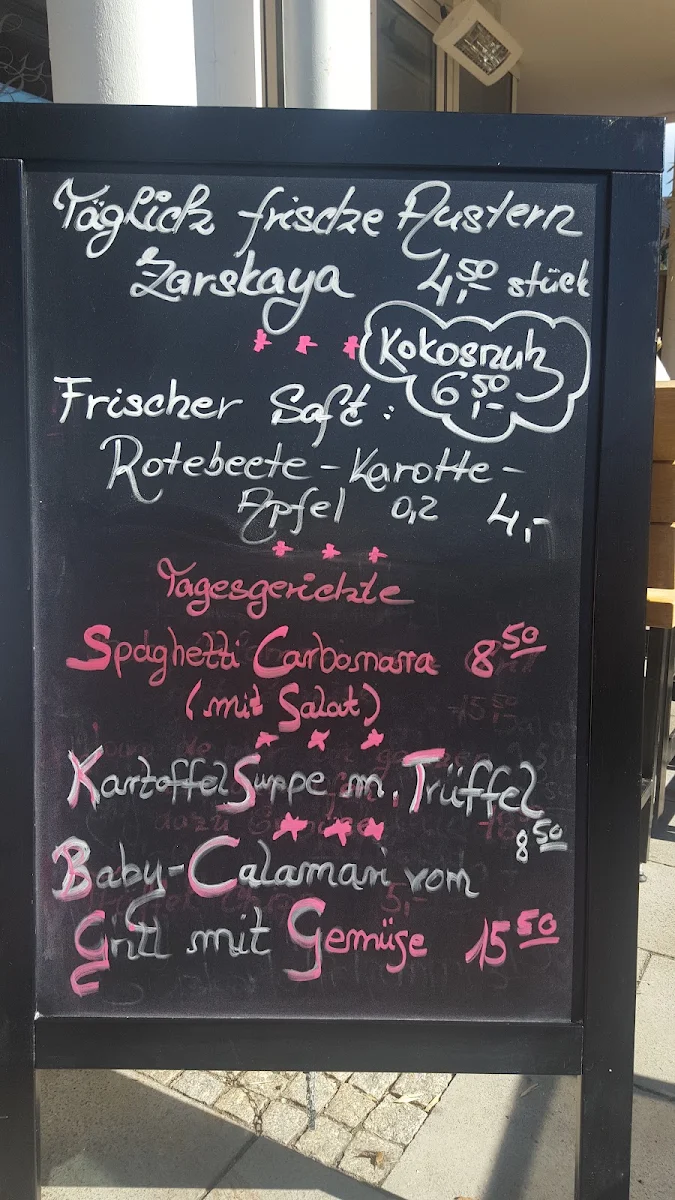 Täglich frische Austern
Zarskaya 4,50 stück
Kokosnuß
6,50
Frischer Saft:
Rotebeete-Karotte-
Apfel 0,2 4,-
Tagesgerichte
Spaghetti Carbonara 8 50
(mit Salat)
KartoffelSuppe m. Trüffel
8 50
Baby-Calamari vom
Grill mit Gemüse 15 50